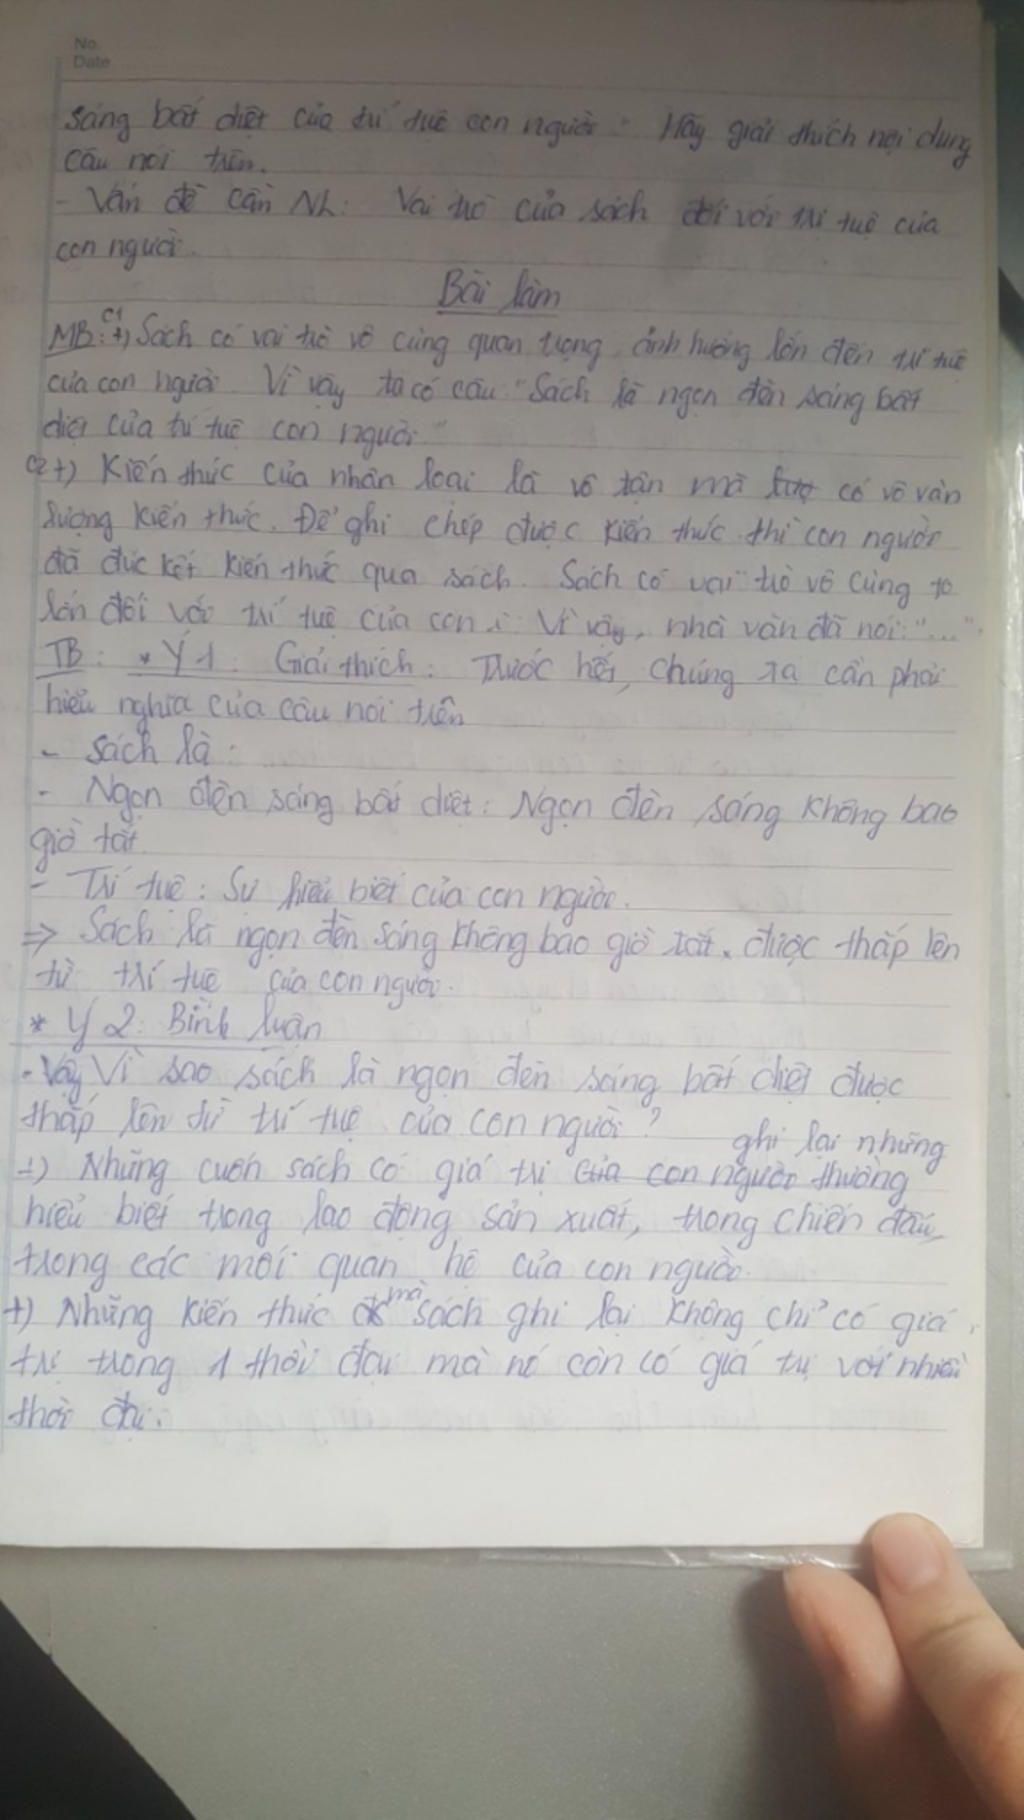 No.
Date
sáng bất diệt của trí tuệ con người". Hãy giải thích nội dung
câu nói trên.
- Vấn đề cần NL: Vai trò của sách đối với trí tuệ của
con người.
Bài làm
MB: C1 +) Sách có vai trò vô cùng quan trọng, ảnh hưởng lớn đến trí tuệ
của con người. Vì vậy ta có câu: "Sách là ngọn đèn sáng bất
diệt của trí tuệ con người"
C2 +) Kiến thức của nhân loại là vô tận mà có vô vàn
lượng kiến thức. Để ghi chép được kiến thức thì con người
đã đúc kết kiến thức qua sách. Sách có vai trò vô cùng to
lớn đối với trí tuệ của con : Vì vậy, nhà văn đã nói: "..."
TB: * Ý 1: Giải thích: Trước hết, chúng ta cần phải
hiểu nghĩa của câu nói trên
- Sách là:
- Ngọn đèn sáng bất diệt: Ngọn đèn sáng không bao
giờ tắt.
- Trí tuệ: Sự hiểu biết của con người.
=> Sách là ngọn đèn sáng không bao giờ tắt, được thắp lên
từ trí tuệ của con người.
* Ý 2: Bình luận
- Vậy Vì sao sách là ngọn đèn sáng bất diệt được
thắp lên từ trí tuệ của con người?
ghi lại những
+) Những cuốn sách có giá trị của con người thường
hiểu biết trong lao động sản xuất, trong chiến đấu,
trong các mối quan hệ của con người.
+) Những kiến thức mà sách ghi lại không chỉ có giá
trị trong 1 thời đại mà nó còn có giá trị với nhiều
thời đại.